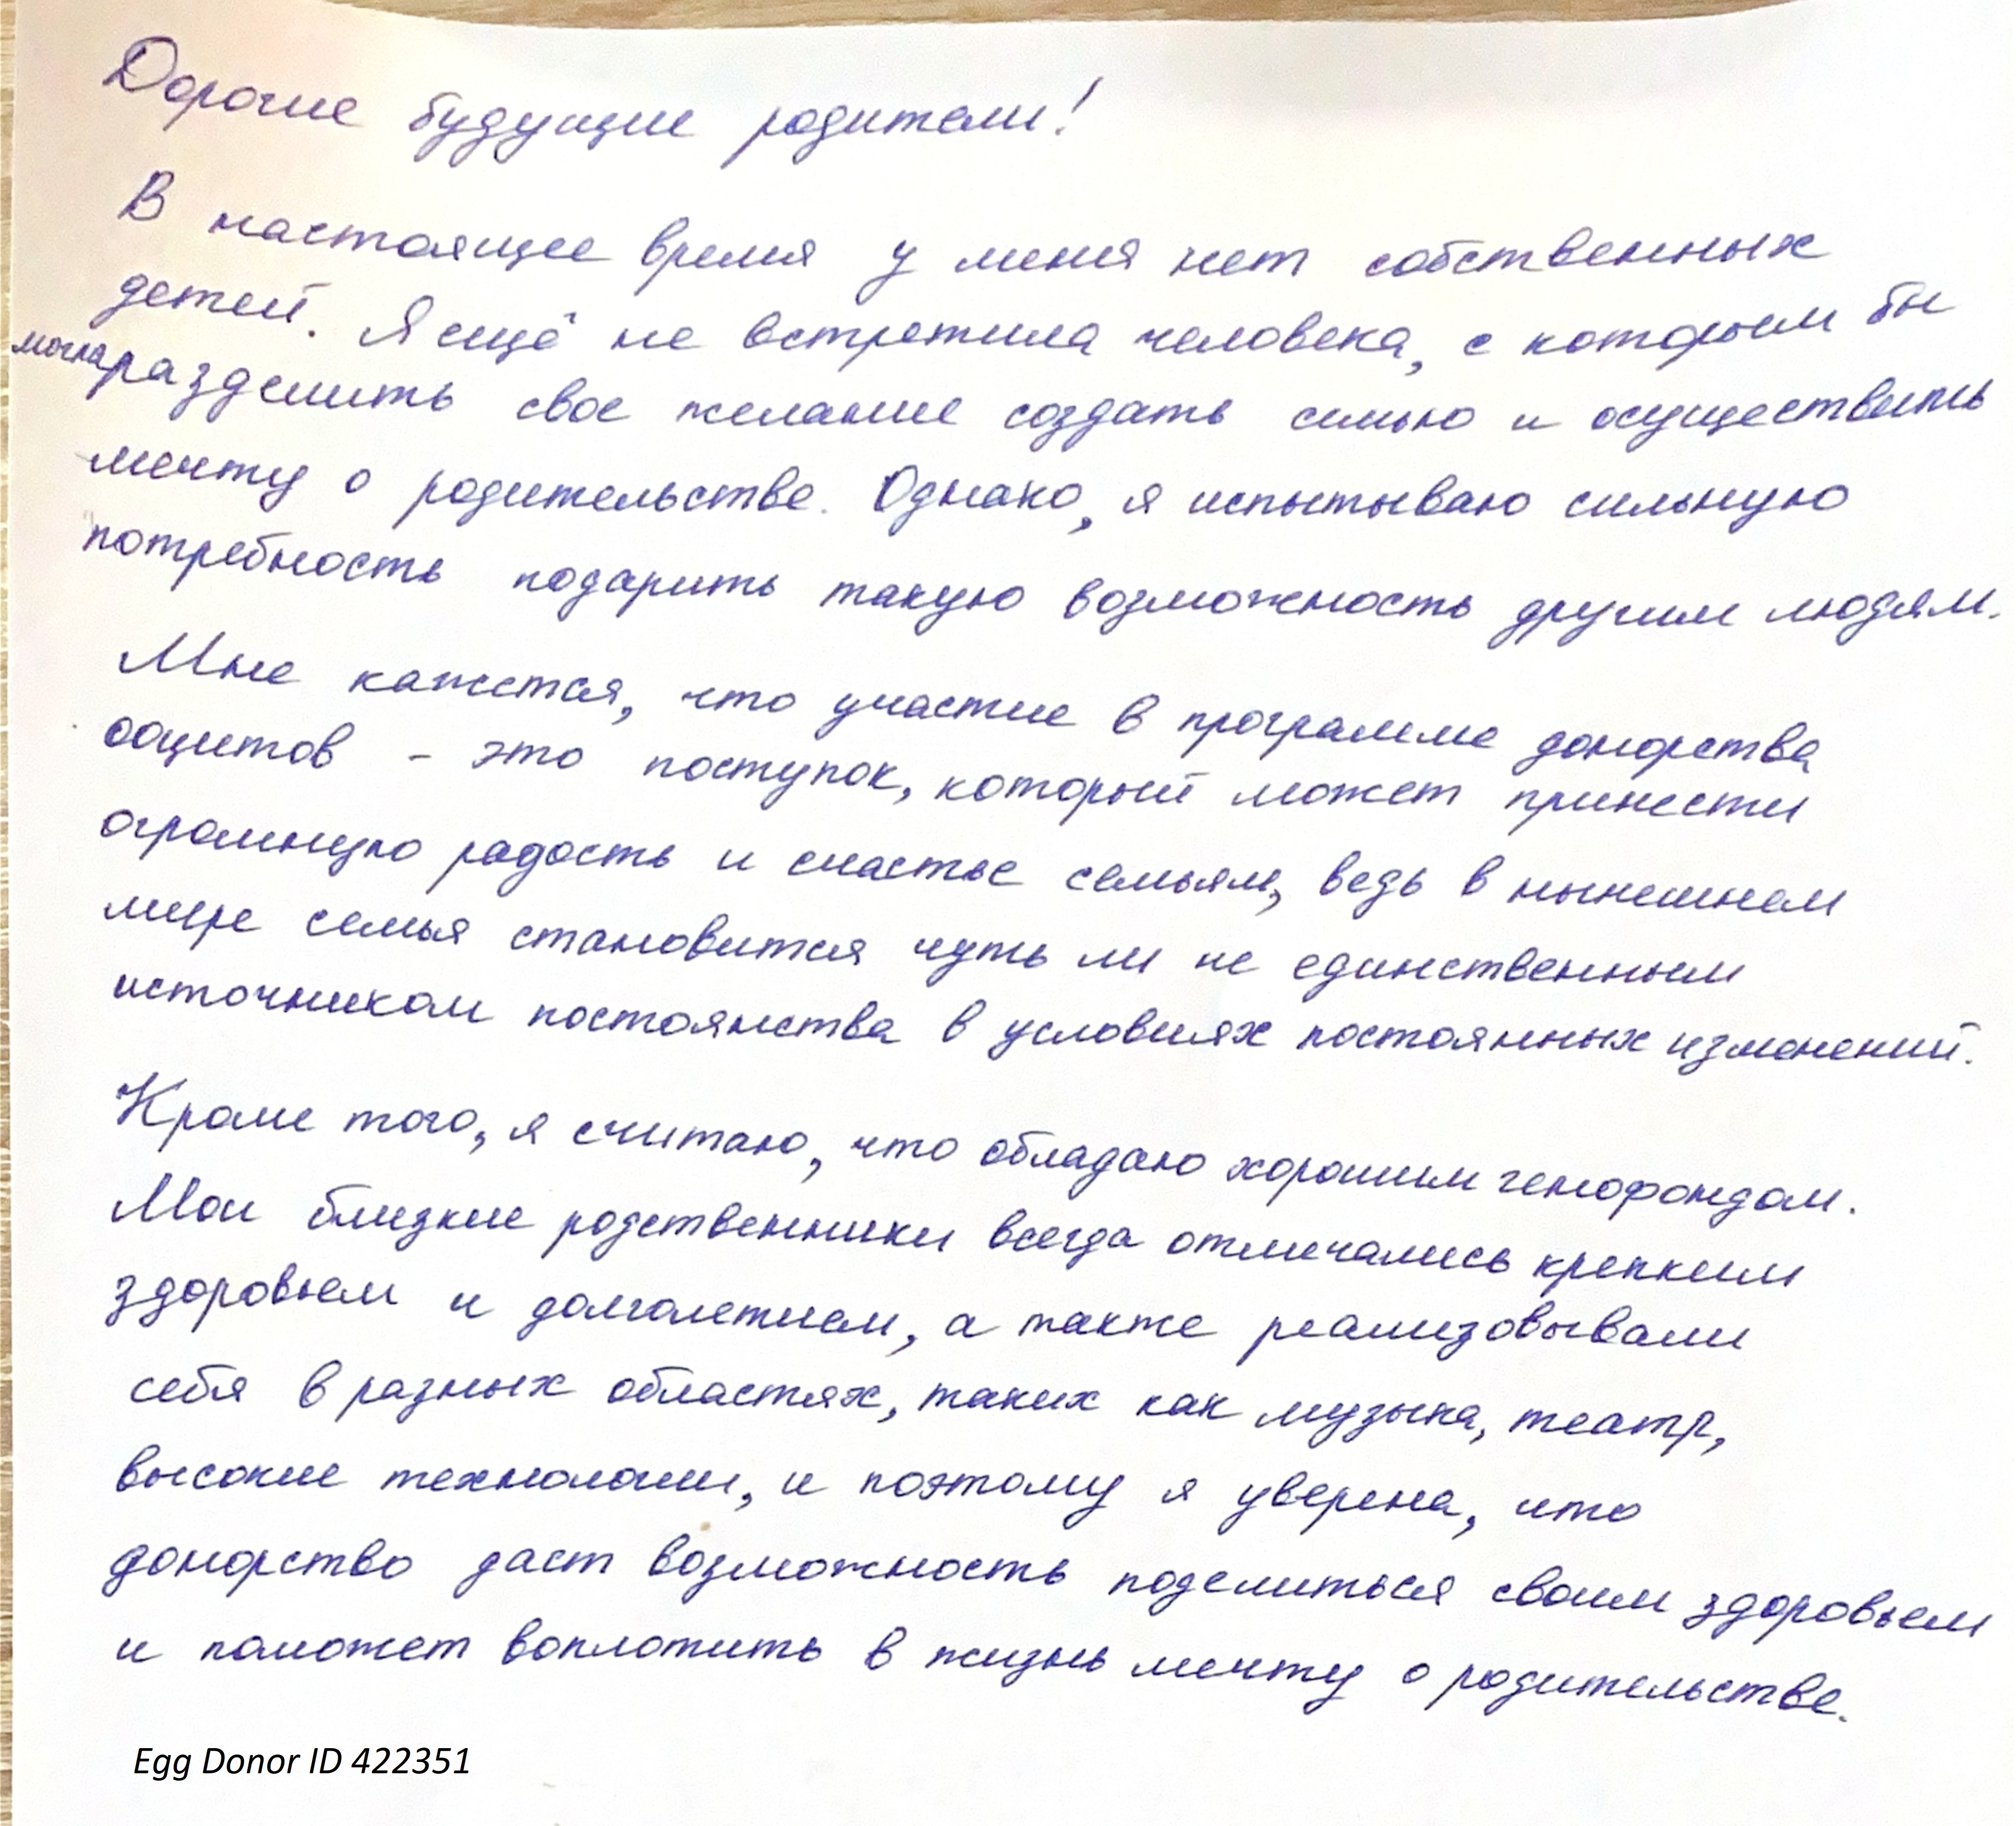 Дорогие будущие родители!
В настоящее время у меня нет собственных
детей. Я ещё не встретила человека, с которым бы
могла разделить свое желание создать семью и осуществить
мечту о родительстве. Однако, я испытываю сильную
потребность подарить такую возможность другим людям.
Мне кажется, что участие в программе донорства
ооцитов - это поступок, который может принести
огромную радость и счастье семьям, ведь в нынешнем
мире семья становится чуть ли не единственным
источником постоянства в условиях постоянных изменений.
Кроме того, я считаю, что обладаю хорошим генофондом.
Мои близкие родственники всегда отличались крепким
здоровьем и долголетием, а также реализовывали
себя в разных областях, таких как музыка, театр,
высокие технологии, и поэтому я уверена, что
донорство даст возможность поделиться своим здоровьем
и поможет воплотить в жизнь мечту о родительстве.
Egg Donor ID 422351